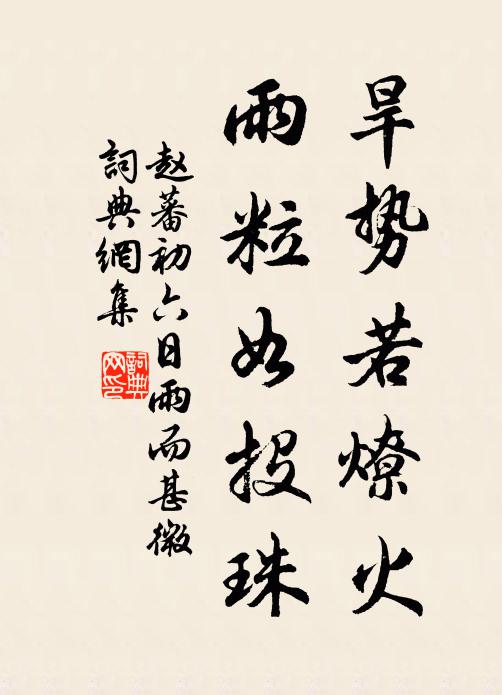 旱势若燎火
雨粒如投珠
赵蕃初六日雨而甚微
詞典網集
詞典
网印